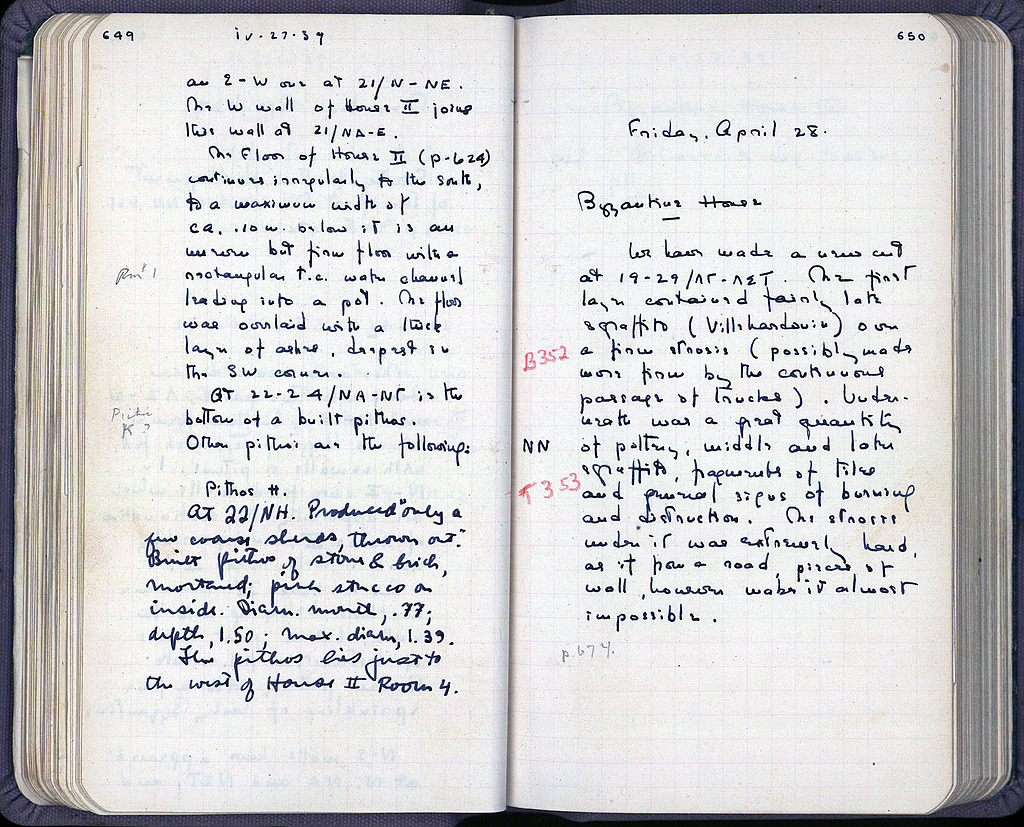 649
iv.27.39
an E-W one at 21/N-NE.
The W wall of House II joins
this wall at 21/NA-E.
The Floor of House II (p. 624)
continues irregularly to the south,
to a maximum width of
ca. .10 m. below it is an
uneven but firm floor with a
Rm 1
rectangular t.c. water channel
leading into a pot. The floor
was overlaid with a thick
layer of ashes, deepest in
the SW corner.
At 22-24/NA-NC is the
Pithi
K?
bottom of a built pithos.
Other pithoi are the following:
Pithos H.
At 22/NH. Produced "only a
few coarse sherds, thrown out."
Built pithos of stone & brick,
mortared; pink stucco on
inside. Diam. mouth, .77;
depth, 1.50; max. diam, 1.39.
The pithos lies just to
the west of House II Room 4.
650
Friday, April 28.
Byzantine House
We have made a new cut
at 19-29/
The first
layer contained fairly late
sgraffito (Villehardouin) over
B352
a firm strosis (possibly made
more firm by the continuous
passage of trucks). Under-
neath was a great quantity
NN
of pottery, middle and late
sgraffito, fragments of tiles
T353
and general signs of burning
and destruction. The strosis
under it was extremely hard,
as if from a road, pieces of
wall, however make it almost
impossible.
p.674.